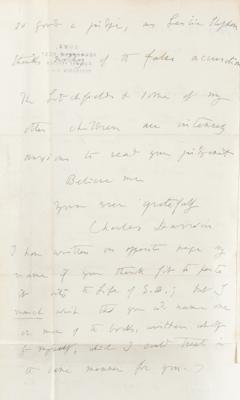 so good a judge, as Leslie Stephen
thinks of the false accusation
The Litchfields & some of my
other children are intensely
anxious to read your judgment
Believe me
Yours ever gratefully
Charles Darwin
I have written on opposite page my
name if you think fit to paste
it into the Life of E.D.; but I
much wish that you would name one
or more of the books, written wholly
by myself, which I could treat in
the same manner for you. —